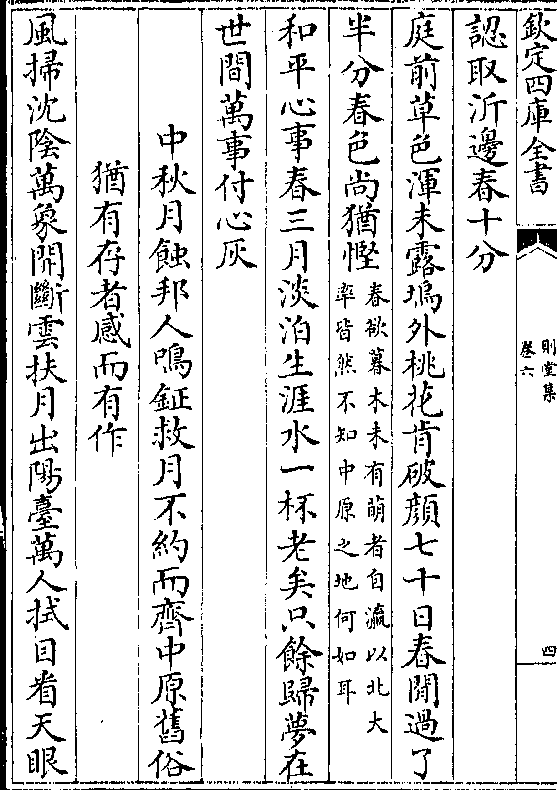 欽定四庫全書
則堂集
卷六
四
認取沂邊春十分
庭前草色渾未露塢外桃花肯破顔七十日春閒過了
半分春色尚猶慳春欲暮木未有萌者自瀛以北大
率皆然不知中原之地何如耳
和平心事春三月淡泊生涯水一杯老矣只餘歸夢在
世間萬事付心灰
中秋月蝕邦人鳴鉦救月不約而齊中原舊俗
猶有存者感而有作
風掃沈陰萬象開斷雲扶月出陽臺萬人拭目看天眼